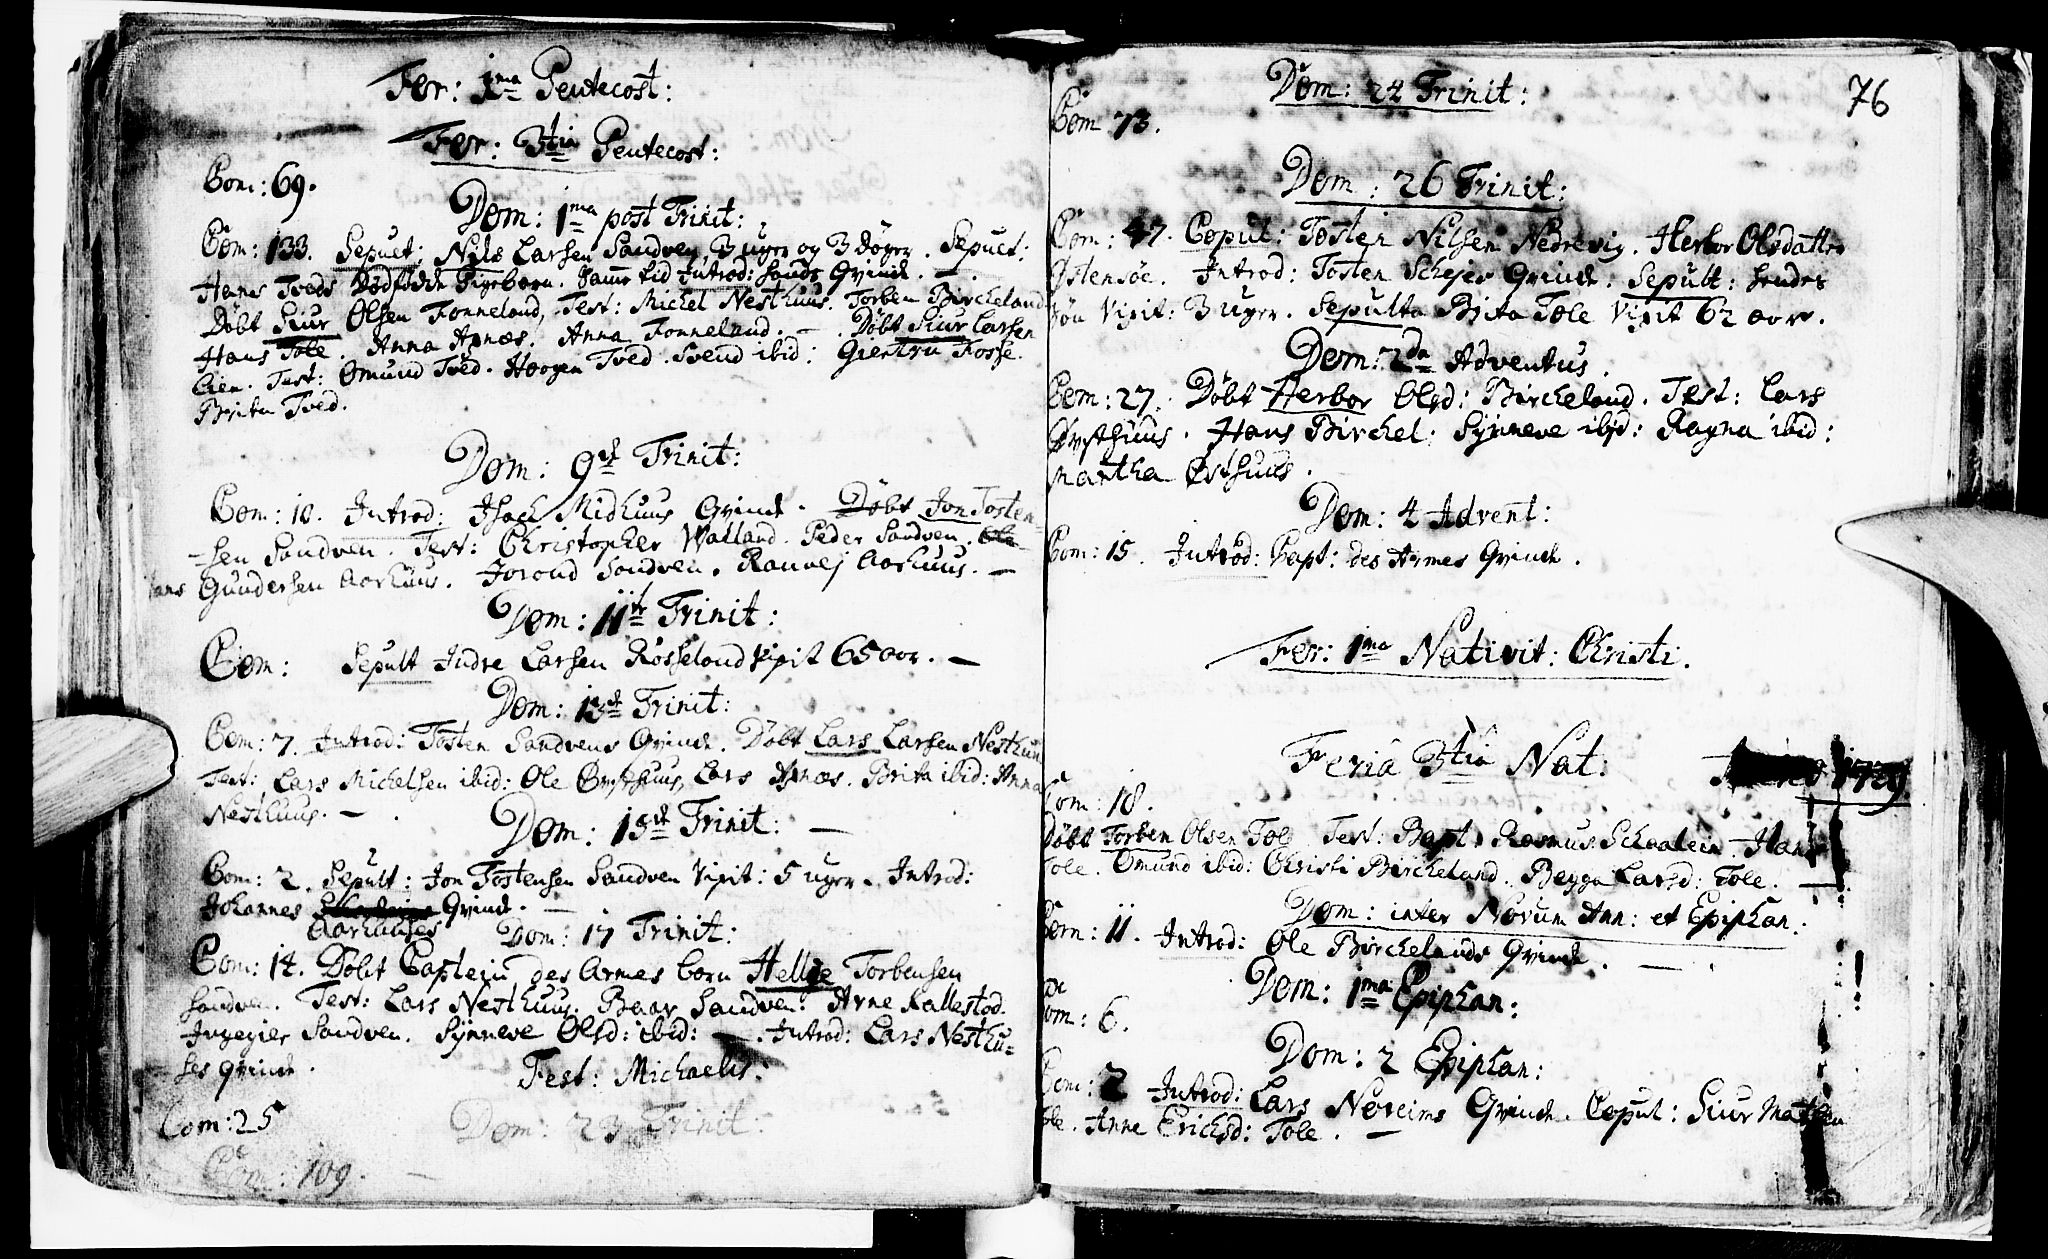 Fer: 1ma Pentecost:
Fer: 3tia Pentecost:
Com: 69.
Dom: 1ma post Trinit:
Com: 133. Sepult: Nils Larsen Sandven, 3 uger og 3 Døger. Sepult:
Hans Tveds Dødfødde Pigebarn. Samme tid Introd: hands Qvinde. —
Døbt Siur Olsen Fonneland, Test: Michel Nesthuus. Torben Bircheland
Hans Tole. Anna Apnæs. Anna Fonneland. — Døbt Siur Larsen
Lien. Test: Omund Tved. Haagen Tved. Svend ibid: Giertru Fosse.
Brita Tved.
Dom: 9de Trinit:
Com: 10. Introd: Isach Midhuus Qvinde. Døbt Jon Tosten-
-sen Sandven. Test: Christopher Vatland. Peder Sandven.
Hans Gundersen Aarhuus. Jorond Sandven. Ranvej Aarhuus. —
Dom: 11te Trinit:
Com: Sepult Indre Larsen Rosseland Vixit 65 aar. —
Dom: 13de Trinit:
Com: 7. Introd: Tosten Sandvens Qvinde. Døbt Lars Larsen Nesthuus
Test: Lars Michelsen ibid: Ole Øvsthuus, Lars Apnæs. Brita ibid: Anna
Nesthuus. —
Dom: 15de Trinit: —
Com: 2. Sepult: Jon Tostensen Sandven Vixit: 5 uger. Introd:
Johannes Qvinde. —
Aarhuuses
Dom: 17 Trinit:
Com: 14. Døbt Captein des Armes barn Hellje Torbensen
Sandven. Test: Lars Nesthuus. Baar Sandven. Arne Kallestad.
Ingegier Sandven. Synneve Olsd: ibid: — . Introd: Lars Nesthu-
-ses qvinde.
Fest: Michaelis:
Com: 25
Dom: 23 Trinit:
Com: 109.
76
Dom: 24 Trinit:
Com 73.
Dom: 26 Trinit:
Com: 47. Copul: Tosten Nilsen Nedrevig. Herbor Olsdatter
Østensøe. Introd: Tosten Schejes Qvinde. Sepult: hendes
Søn Vixit: 3 uger. Sepulta Brita Tole Vixit 62 aar.
Dom: 2da Adventus.
Com: 27. Døbt Herbor Olsd: Bircheland. Test: Lars
Øvsthuus. Hans Birchel: Synneve ibid: Ragna ibid:
Martha Østhuus.
Dom: 4 Advent:
Com: 15. Introd: Capt: des Armes Qvinde.
Fer: 1ma Nativit: Christi.
Feria 3tia Nat:
1729.
Com: 18.
Døbt Torben Olsen Tole Test: Capt. Rasmus Schaalein Hans
Tole. Omund ibid: Christi Bircheland. Begga Larsd: Tole. —
Dom: inter Novum Ann: et Epiphan.
Com: 11. Introd: Ole Birchelands Qvinde. —
Dom: 1ma Epiphan:
Com: 6.
Dom: 2 Epiphan:
Com: 2 Introd: Lars Noreims Qvinde. Copul: Siur Mathsen
Tole. Anne Erichsd: Tole. —